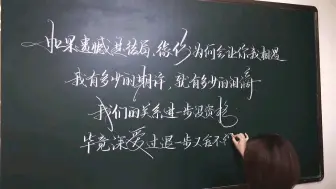 如果遗憾是结局 缘分为何会让你我相遇
我有多少的期许 就有多少的回
我们的关系进一步没资格
毕竟深爱过退一步又舍不